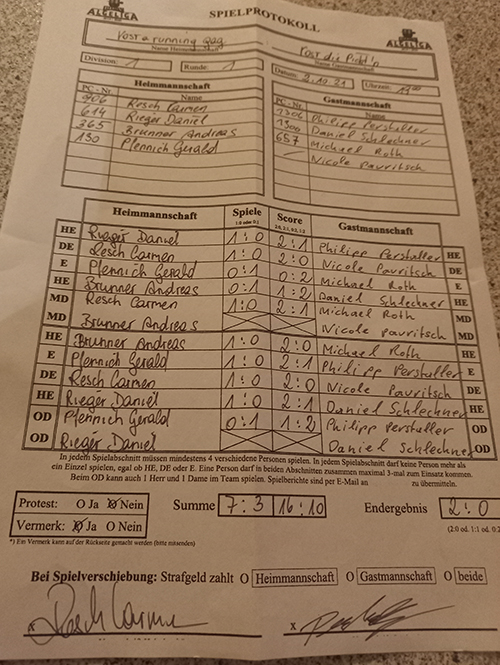 SPIELPROTOKOLL
ALGELIGA ALGELIGA
Vost a running gag
Fost die Pickl'n
Name
Division: 1 Runde: 1 Datum: 2.10.21 Uhrzeit:
Heimmannschaft Gastmannschaft
PC-Nr. Name PC-Nr. Name
906 Resch Carmen 1306 Philipp Perstaller
614 Rieger Daniel 1300 Daniel Schlechner
365 Brunner Andreas 657 Michael Roth
130 Pfennich Gerald Nicole Pauritsch
Heimmannschaft Spiele Score Gastmannschaft
1:0 o. 0:1
HE Rieger Daniel 1:0 2:1 Philipp Perstaller HE
DE Resch Carmen 1:0 2:0 Nicole Pauritsch DE
E Pfennich Gerald 0:1 0:2 Michael Roth E
HE Brunner Andreas 0:1 1:2 Daniel Schlechner HE
MD Resch Carmen 1:0 2:1 Michael Roth MD
MD Brunner Andreas Nicole Pauritsch MD
HE Brunner Andreas 1:0 2:0 Michael Roth HE
E Pfennich Gerald 1:0 2:1 Philipp Perstaller E
DE Resch Carmen 1:0 2:0 Nicole Pauritsch DE
HE Rieger Daniel 1:0 2:1 Daniel Schlechner HE
OD Pfennich Gerald 0:1 1:2 Philipp Perstaller OD
OD Rieger Daniel Daniel Schlechner OD
In jedem Spielabschnitt müssen mindestens 4 verschiedene Personen spielen. In jedem Spielabschnitt darf keine Person mehr als
ein Einzel spielen, egal ob HE, DE oder E. Eine Person darf in beiden Abschnitten zusammen maximal 3-mal zum Einsatz kommen.
Beim OD kann auch 1 Herr und 1 Dame im Team spielen. Spielberichte sind per E-Mail an zu übermitteln.
Protest: O Ja O Nein Summe 7:3 16:10 Endergebnis 2:0
Vermerk: O Ja O Nein (2:0 od. 1:1 od. 0:2)
*) Ein Vermerk kann auf der Rückseite gemacht werden (bitte umseitig)
Bei Spielverschiebung: Strafgeld zahlt O Heimmannschaft O Gastmannschaft O beide
x Resch Carmen x